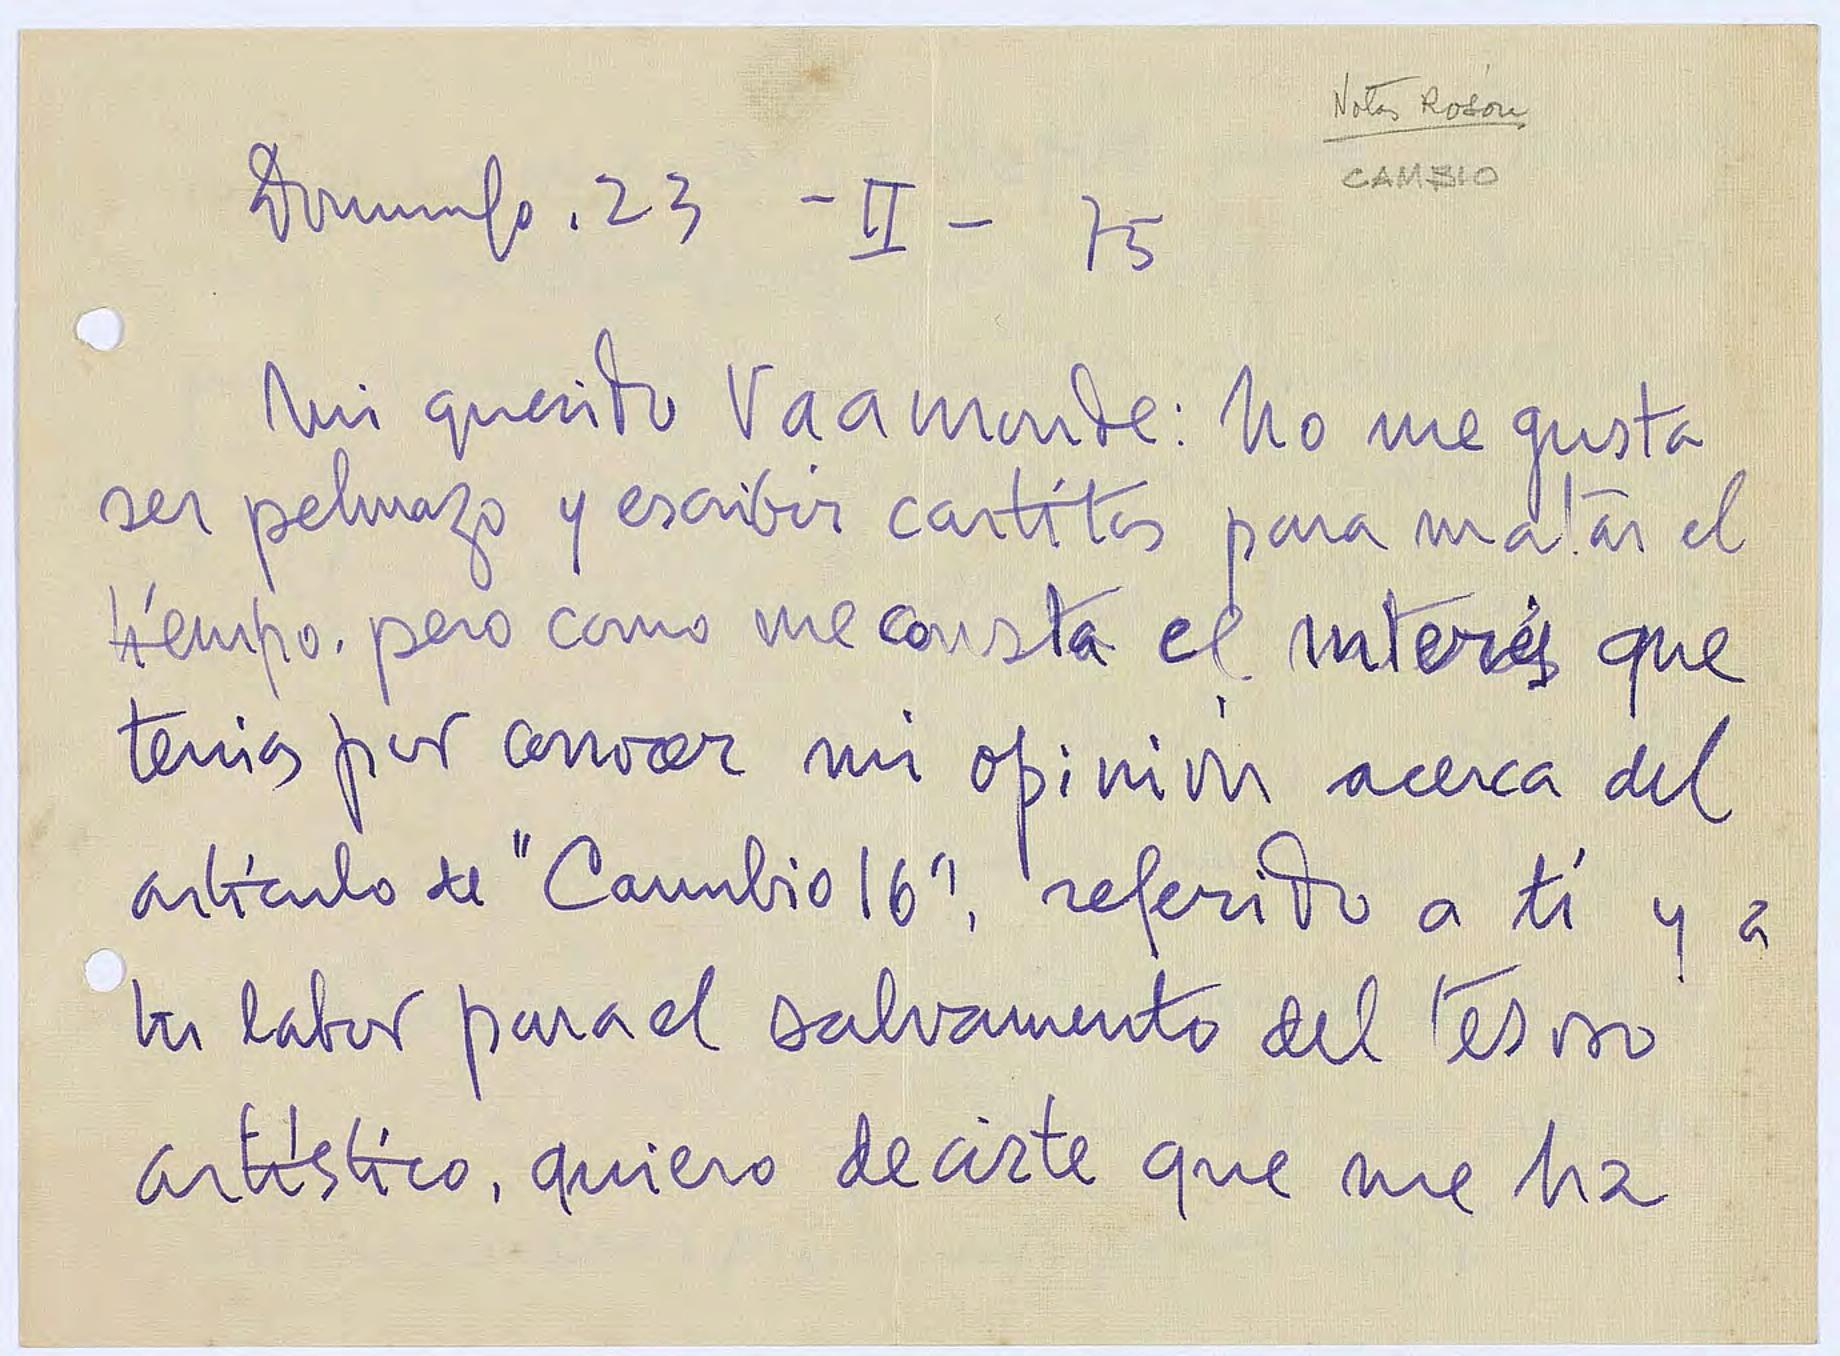 Notas Rosón
CAMBIO
Domingo. 23 - II - 75
Mi querido Vaamonde: No me gusta
ser pelmazo y escribir cartitas para matar el
tiempo. pero como me consta el interés que
tenias por conocer mi opinión acerca del
artículo de "Cambio 16", referido a tí y a
tu labor para el salvamento del tesoro
artístico, quiero decirte que me ha